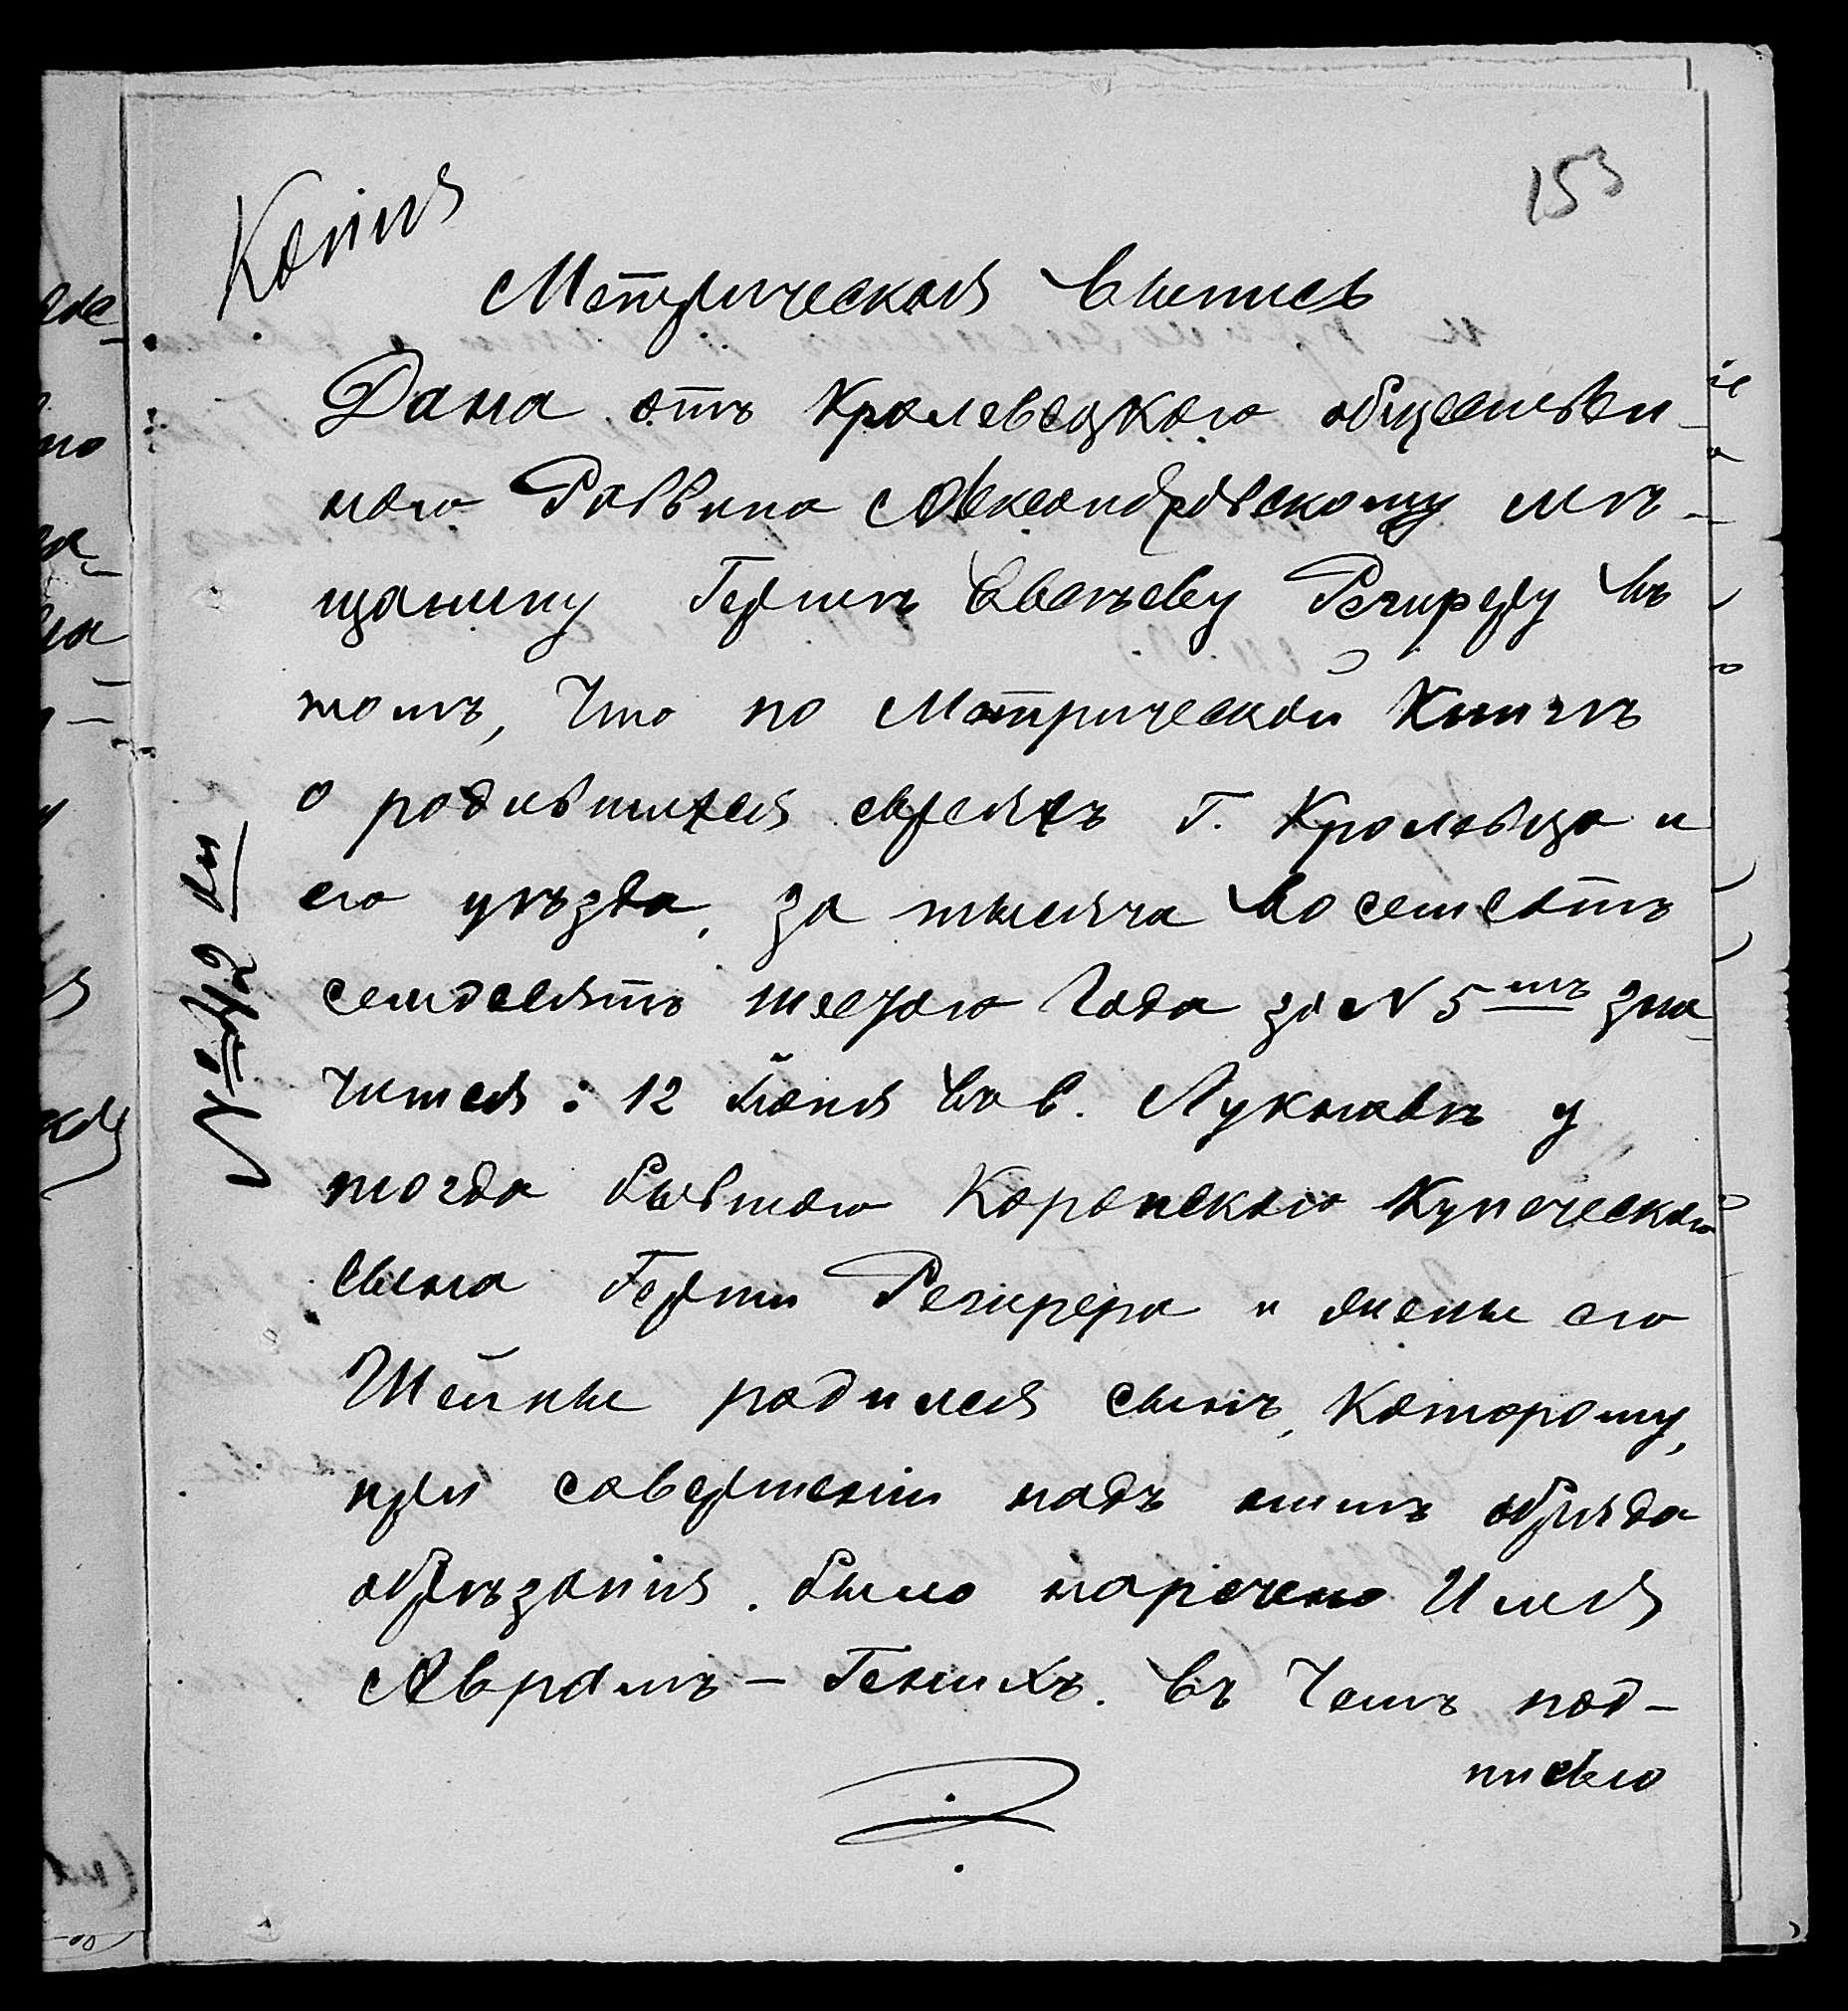 153
Копія
Метрическая Выпись
Дана отъ Кролевецкаго обществен-
наго Раввина Александровскому мѣ-
щанину Гершѣ Евсѣеву Региреру въ
томъ, Что по Метрической Книгѣ
о родившихся евреяхъ г. Кролевца и
его уѣзда, за тысяча восемьсотъ
семдесятъ шестаго Года за № 5мъ зна-
чится: 12 Іюня въ в. Лукнавѣ у
тогда бывшаго Коропскаго Купеческаго
сына Герши Регирера и жены его
Шейны родился сынъ, Которому,
при совершеніи надъ нимъ обряда
обрѣзанія было наречено Имя
Аврамъ-Генихъ. Въ Чемъ под-
писью